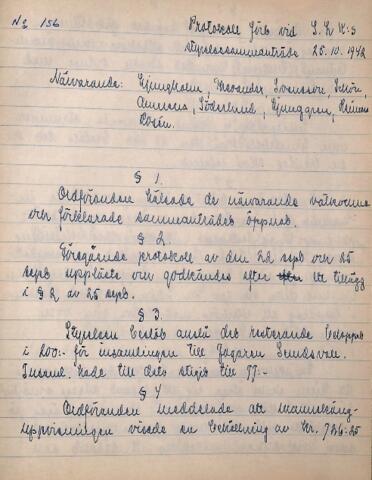 No 156 Protokoll förb vid S.L.K:s
styrelsesammanträde 25.10.1942
Närvarande: Ljungholm, Svensson, Schön,
Söderlund, Ljunggren,
Rosén.
§ 1.
Ordföranden hälsade de närvarande välkomna
och förklarade sammanträdet öppnad.
§ 2.
Föregående protokoll av den 22 sept och 25
sept upplästs och godkändes efter ett tillägg
i § 2 av 25 sept.
§ 3.
Styrelsen beslöt anslå det resterande beloppet
i 200:- för insamlingen till
hade till dato stigit till 77:-
§ 4
Ordföranden meddelade att
uppvisningen visade en behållning av Kr. 726-25